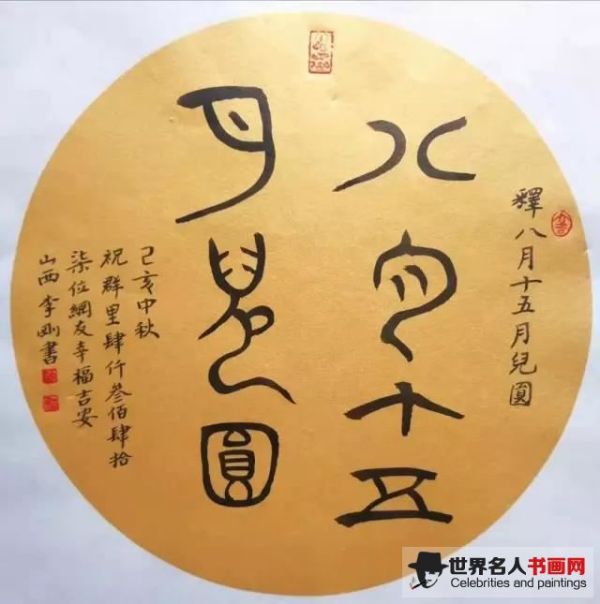 釋八月十五月兒圓
八月十五
月兒圓
己亥中秋
祝群里肆仟叁佰肆拾
柒位網友幸福吉安
山西李刚書
世界名人书画网
Celebrities and paintings